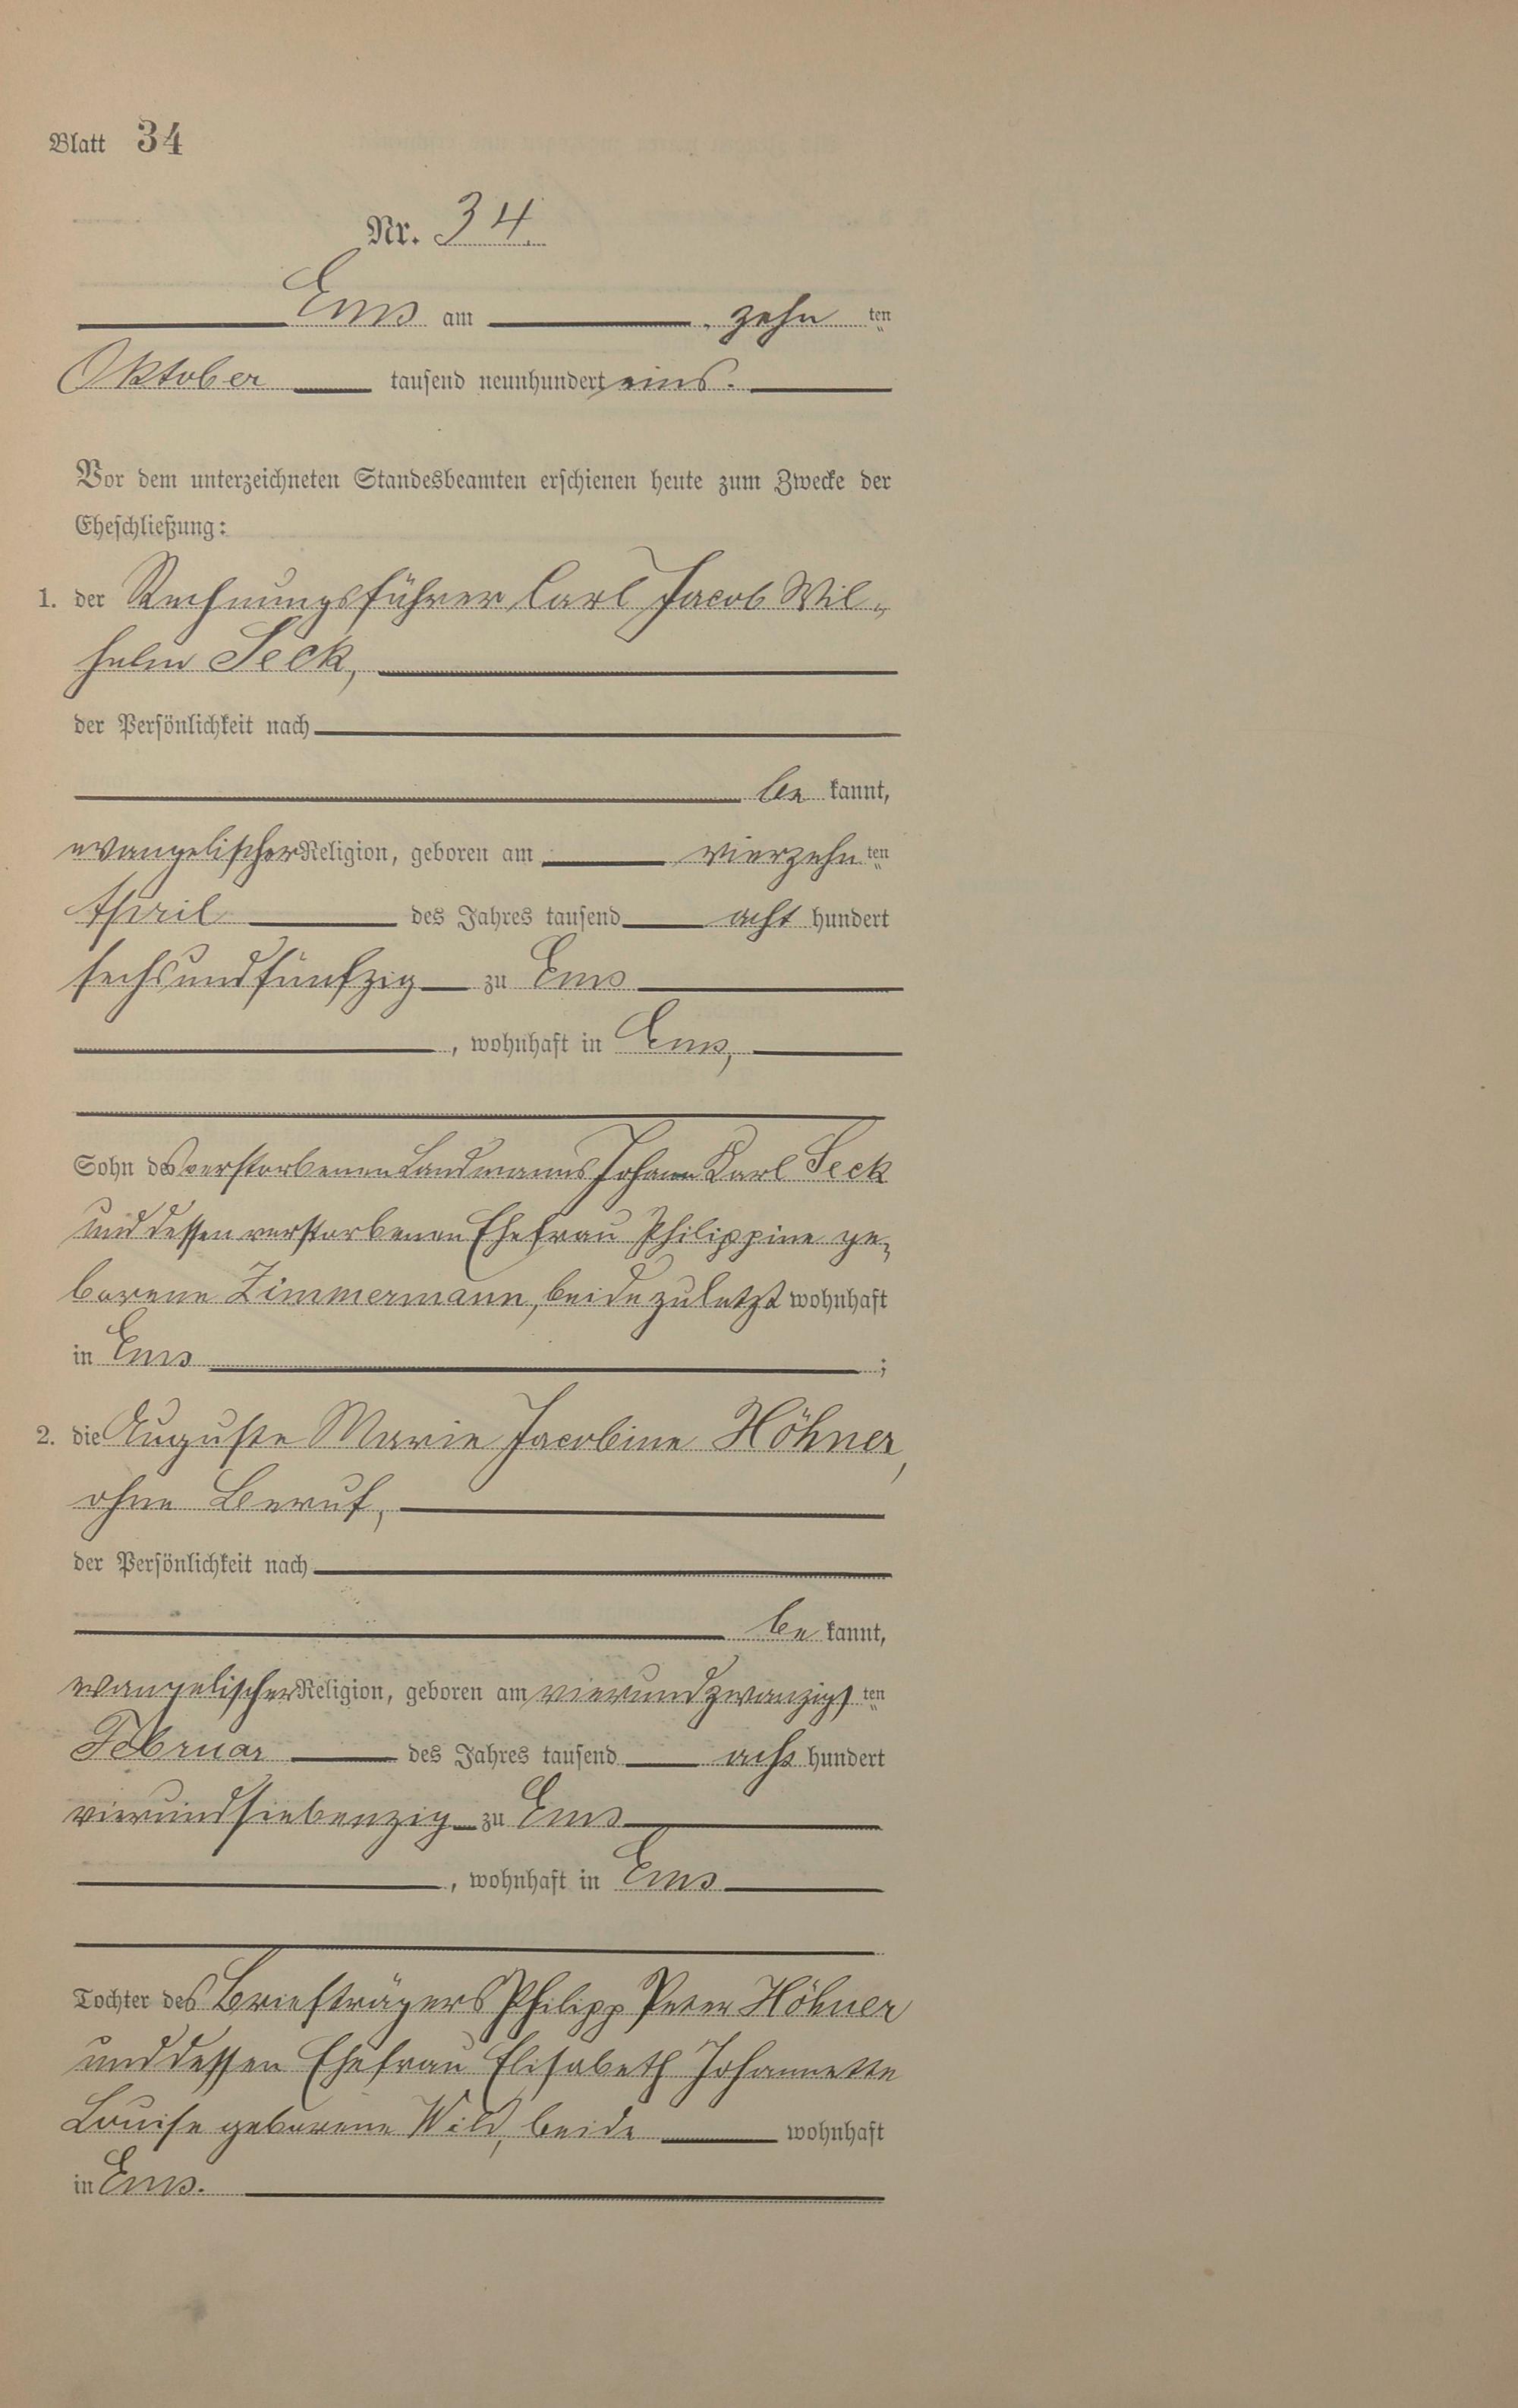 Blatt 34
Nr. 34.
Ems am zehn ten
Oktober tausend neunhundert eins.
Vor dem unterzeichneten Standesbeamten erschienen heute zum Zwecke der
Eheschließung:
1. der Rechnungsführer Carl Jacob Wil-
helm Seck,
der Persönlichkeit nach
be kannt,
evangelischer Religion, geboren am vierzehn ten
April des Jahres tausend acht hundert
sechsundfünfzig zu Ems
, wohnhaft in Ems,
Sohn des verstorbenen Landmanns Johann Karl Seck
und dessen verstorbenen Ehefrau Philippine ge-
borene Zimmermann, beide zuletzt wohnhaft
in Ems ;
2. die Auguste Marie Jacobine Höhner,
ohne Beruf,
der Persönlichkeit nach
be kannt,
evangelischer Religion, geboren am vierundzwanzigs ten
Februar des Jahres tausend acht hundert
vierundsiebenzig zu Ems
, wohnhaft in Ems
Tochter des Briefträgers Philipp Peter Höhner
und dessen Ehefrau Elisabeth Johannette
Louise geborene Wild, beide wohnhaft
in Ems.